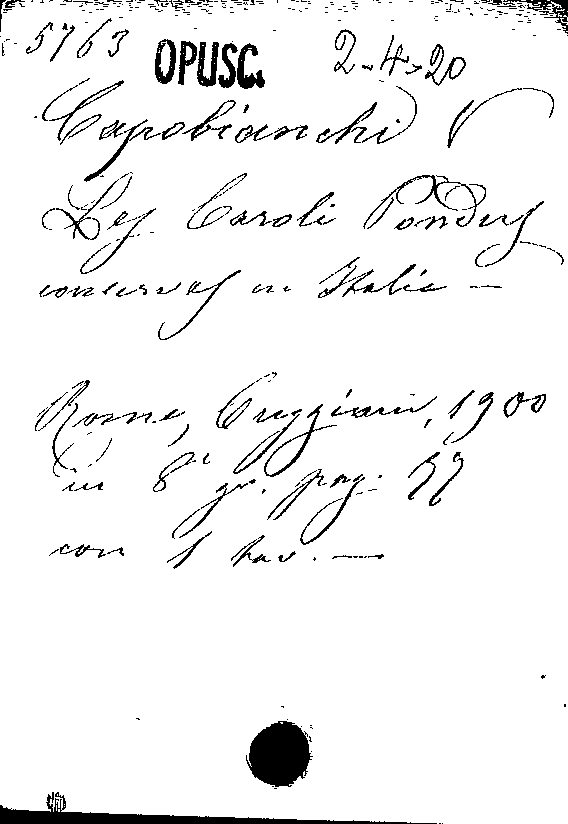 5763 OPUSC. 2-4-20
Capobianchi V
Les Caroli Pondus
conservés en Italie —
Rome, Cuggiani, 1900
in 8° gr. pag.
con 1 tav. —